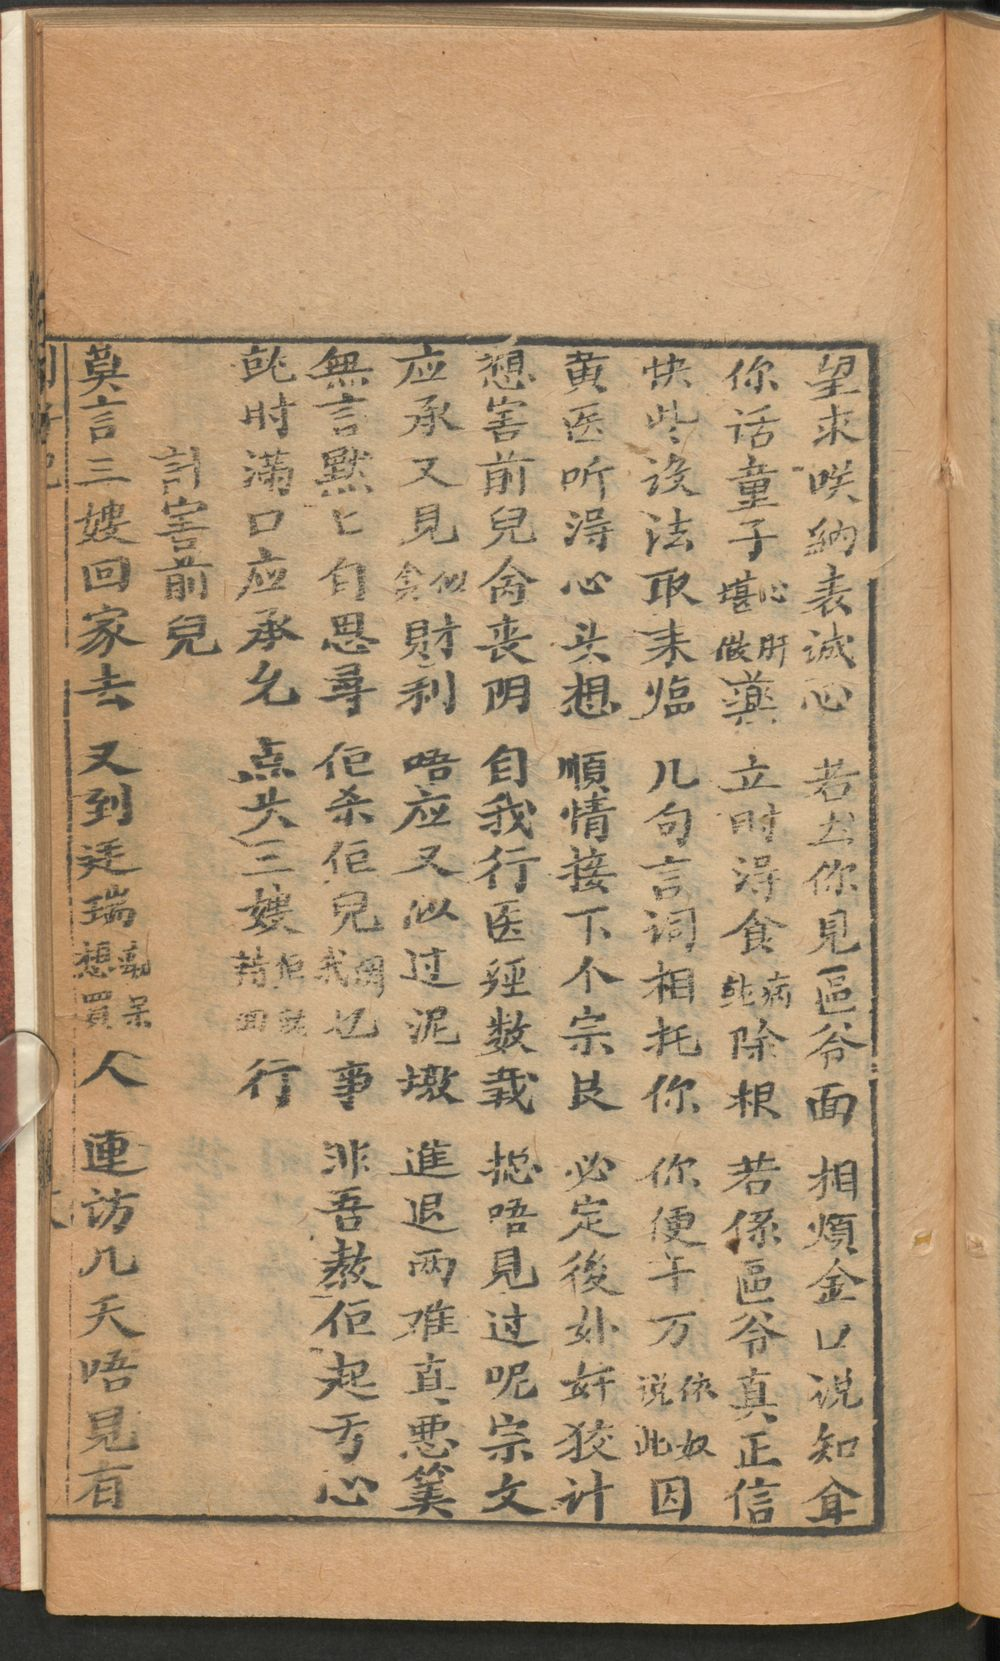 望求咲納表誠心 若然你見區爷面 相煩金口说知音
你话童子心肝堪做藥 立时淂食病就除根 若係區爷真正信
快些设法取来临 几句言词相托你 你便千万依奴说此因
黄医听淂心头想 順情接下个宗良 必定後外奸狡计
想害前兒禽丧阴 自我行医經数载 捴唔見过呢宗文
应承又見似贪財利 唔应又似过泥墩 進退两难真悪算
無言黙匕自思尋 佢杀佢兒闲我乜事 非吾教佢起亏心
就时滿口应承允 点头三嫂佢就转回行
計害前兒
莫言三嫂回家去 又到廷瑞想買人 連访几天唔見有